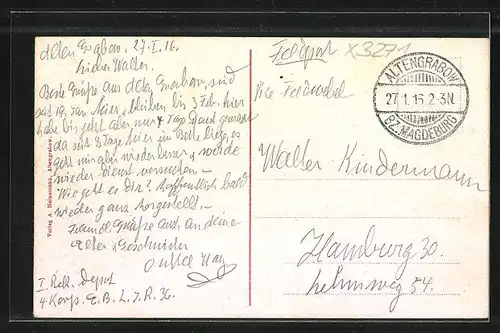 Alten Grabow. 27.I.16.
Lieber Walter.
Beste Grüße aus Alten Grabow, sind
seit 19. Jan hier, bleiben bis 3 Feb. hier
habe bis jetzt aber nur 4 Tag Dienst gemacht
da seit 8 Tage hier im Bett lieg, es
geht mir aber wieder besser & werde
wieder Dienst versuchen. –
Wie geht es Dir? Hoffentlich bald
wieder ganz hergestellt. –
Grüße auch an deine
Alter & Geschwister
Onkel
I Rekr. Depot
4 Korps. E. B. L. I. R. 36.
Verlag A. Heinemann, Altengrabow.
Feldpost
x3271
ALTENGRABOW
27.1.16 2-3N.
BZ. MAGDEBURG
Walter Kindermann
Hamburg 30.
Lehmweg 54.